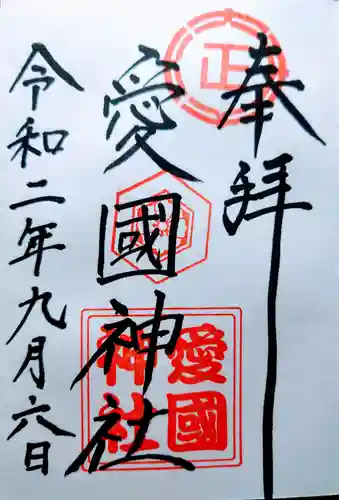 奉拝
正
愛國神社
愛國
神社
令和二年九月六日